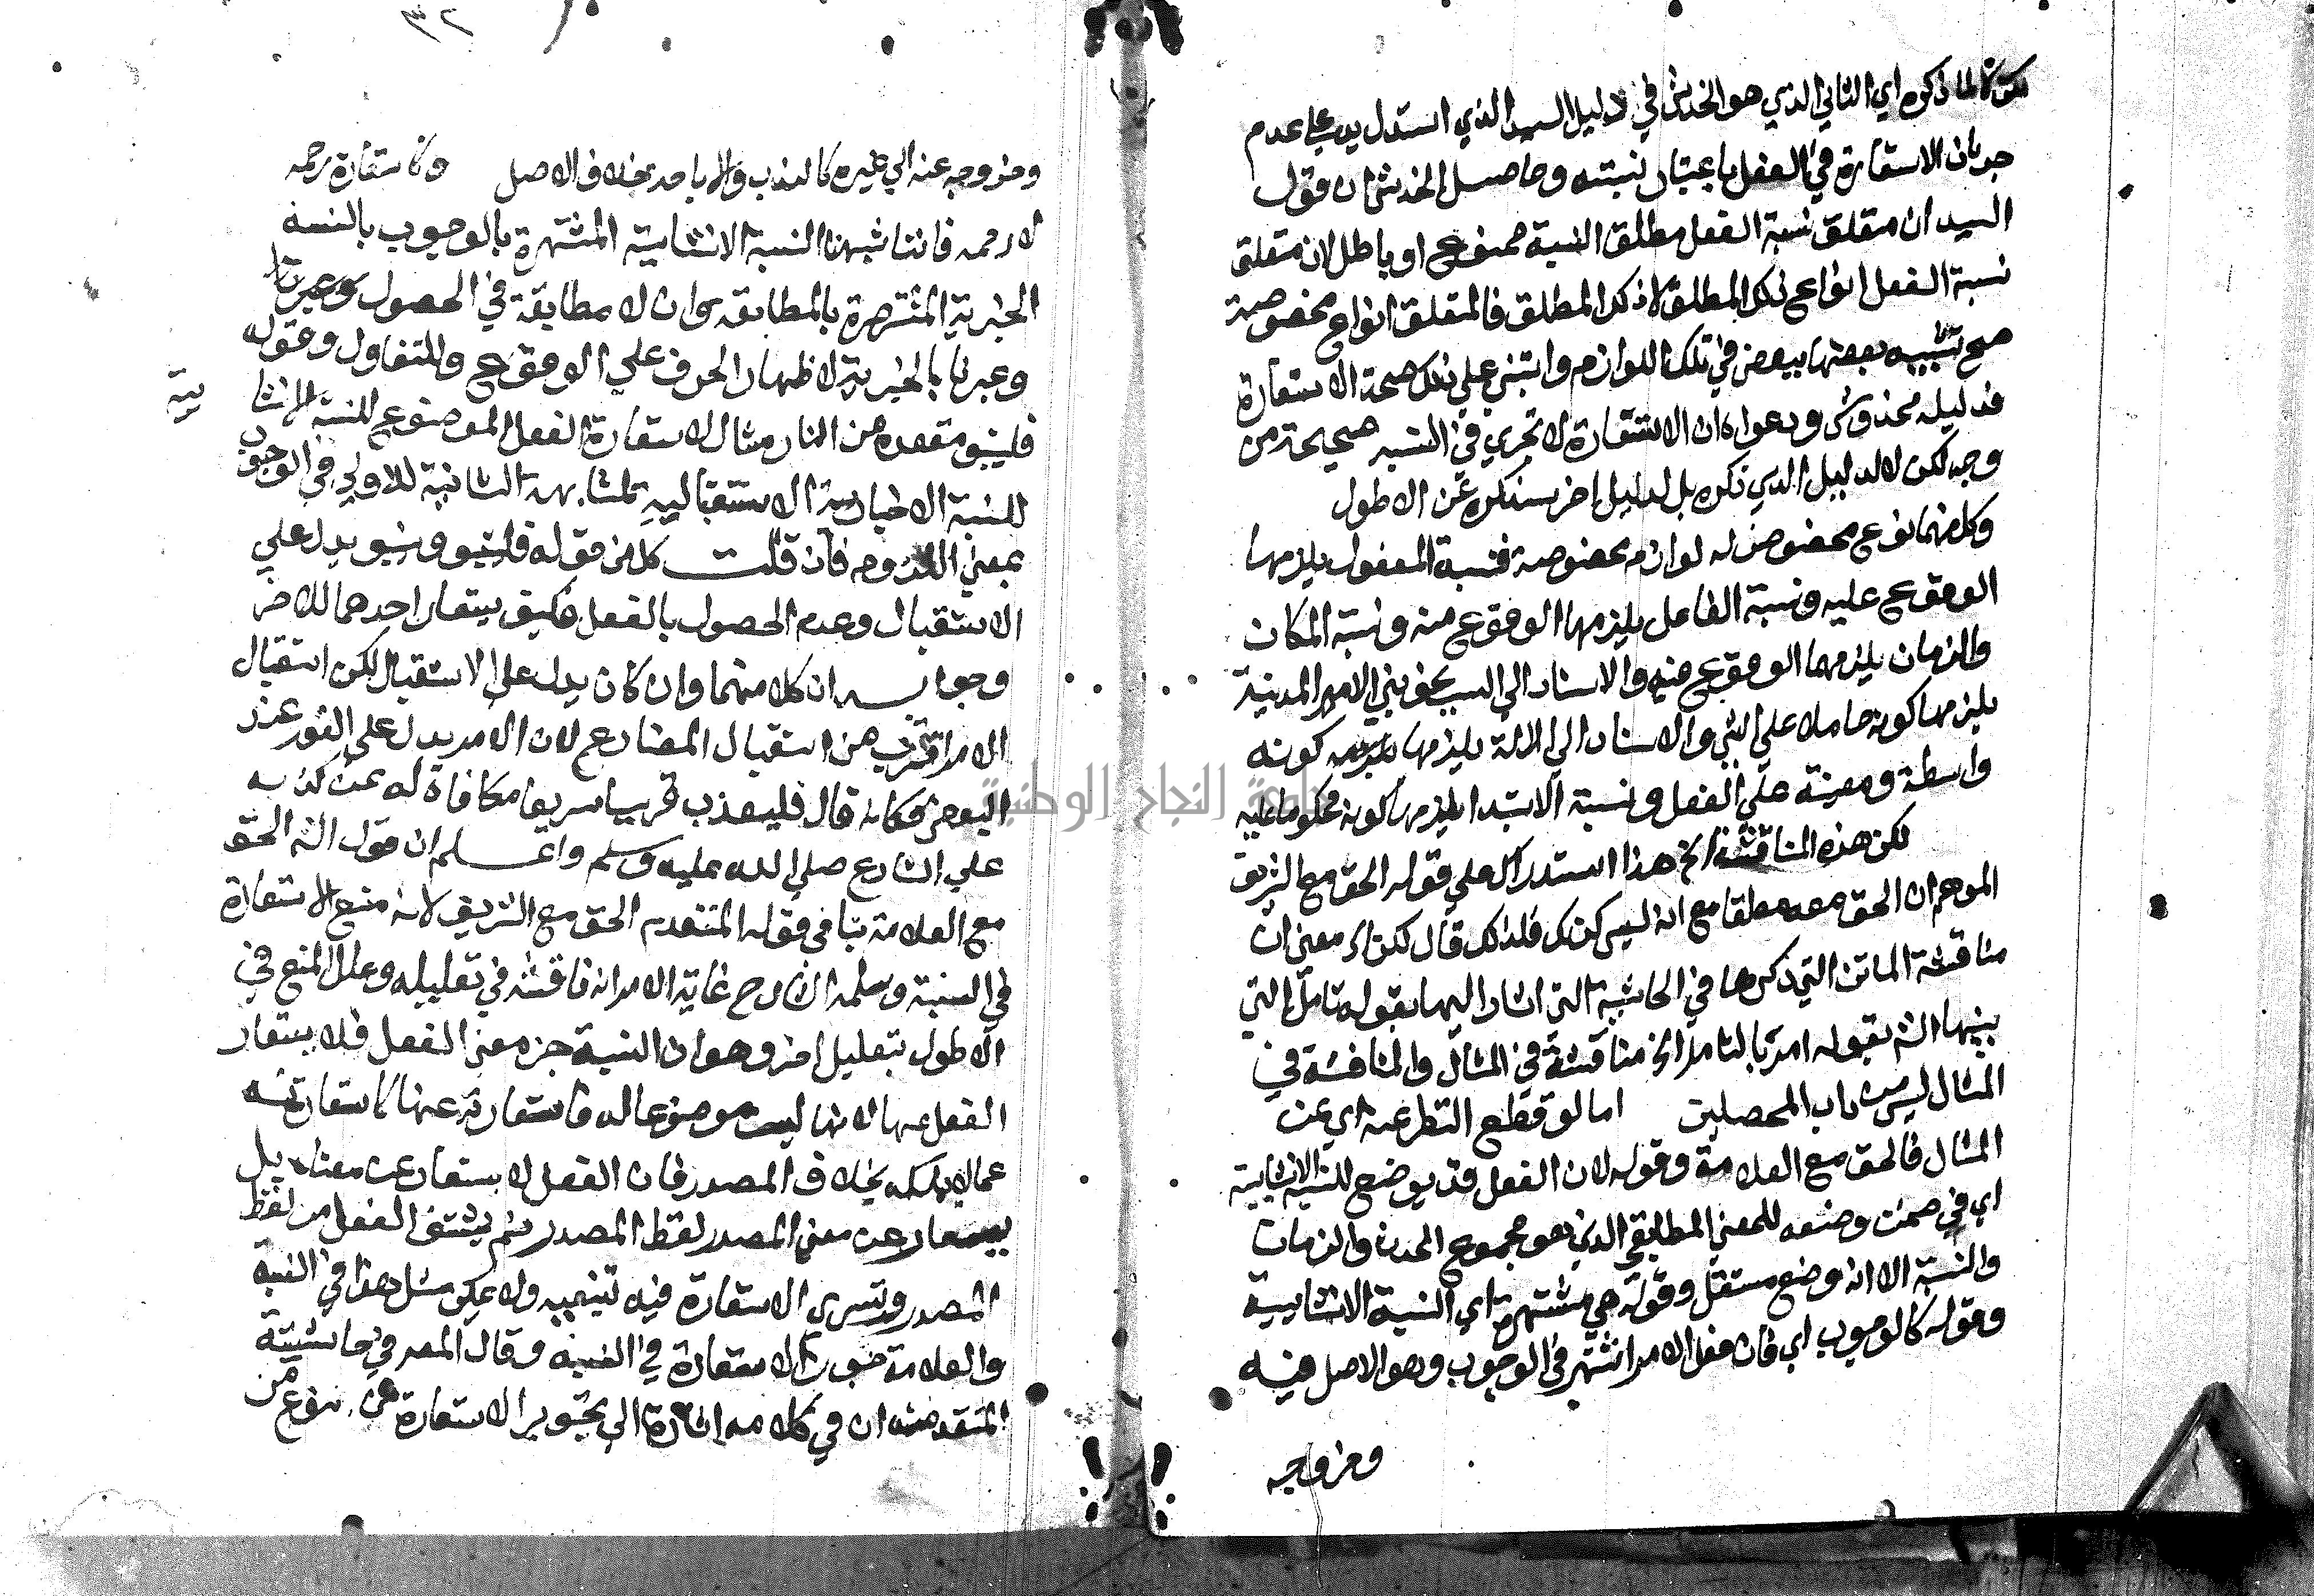 لما ذكره اي الثاني الذي هو الخدش في دليل السيد الذي استدل به علي عدم
جريان الاستعارة في الفعل باعتبار نسبته وحاصل الخدش ان قول
السيد ان متعلق نسبة الفعل مطلق النسبة ممنوع او باطل لان متعلق
نسبة الفعل انواع ذلك المطلق لا ذلك المطلق فالمتعلق انواع مخصوصة
صح تشبيه بعضها ببعض في تلك اللوازم وانبني علي ذلك صحة الاستعارة
فدليله مخدوش ودعواه ان الاستعارة لا تجري في النسبة صحيحة من
وجه لكن لا لدليل الذي ذكره بل لدليل اخر سنذكره عن الاطول
وكل منهما نوع مخصوص له لوازم مخصوصة فنسبة المفعول يلزمها
الوقوع عليه ونسبة الفاعل يلزمها الوقوع منه ونسبة المكان
والزمان يلزمها الوقوع فيه والاسناد الي السبب نحو بني الامير المدينة
يلزمها كونه حاملا علي الشي والاسناد الي الالة يلزمها كونه
واسطة ومعينة علي الفعل ونسبة الابتدا يلزمها كونه محكوما عليه
لكن هذه المناقشة الخ هذا استدراك علي قوله الحق مع الشريف
الموهم ان الحق معه مطلقا مع انه ليس كذلك فلذلك قال لكن اي معني ان
مناقشة الماتن التي ذكرها في الحاشية التي اشار اليها بقوله تامل التي
بينها الش بقوله امر بالتامل الخ مناقشة في المثال والمناقشة في
المثال ليس من داب المحصلين اما لو قطع النظر عنه اي عن
المثال فالحق مع العلامة وقوله لان الفعل قد يوضع للنسبة الانشايية
اي في ضمن وضعه للمعني المطابقي الذي هو مجموع الحدث والزمان
والنسبة الا انه وضع مستقل وقوله هي مشتهرة اي النسبة الانشايية
وقوله كالوجوب اي فان فعل الامر اشتهر في الوجوب وهو الاصل فيه
وخروجه
٣٢
وخروجه عنه الي غيره كالندب والاباحة بخلاف الاصل وكاستعارة رحمه
لارحمه فاننا شبهنا النسبة الانشايية المشتهرة بالوجوب بالنسبة
الخبرية المشتهرة بالمطابقة وان لا مطابقة في الحصول
وعبرنا بالخبرية لاظهار الحرف علي الوقوع وللتفاول وقوله
فليتبو مقعده من النار مثال لاستعارة الفعل الموضوع للنسبة الانشا
يية
للنسبة الاخبارية الاستقبالية لمشابهة الثانية للاولي في الوجوب
بمعني اللزوم فان قلت كل من قوله فليتبو ويتبو يدل علي
الاستقبال وعدم الحصول بالفعل فكيف يستعار احدهما للاخر
وجوابه ان كلا منهما وان كان يدل علي الاستقبال لكن استقبال
الامر اقرب من استقبال المضارع لان الامر يدل علي الفور عند
البعض فكانه قال فليعذب قريبا سريعا مكافاة له عن كذبه
علي الشارع صلي الله عليه وسلم واعلم ان قول الش الحق
مع العلامة ينافي قوله المتقدم الحق مع الشريف لانه منع الاستعارة
في النسبة وسلمه الشارح غاية الامر انه ناقشه في تعليله وعلل المنع في
الاطول بتعليل اخر وهو ان النسبة جزء معني الفعل فلا يستعار
الفعل عنها لانها ليست موضوعا له فاستعارته عنها كاستعارته
عما لا يملكه بخلاف المصدر فان الفعل لا يستعار عن معناه بل
يستعار عن معني المصدر لفظ المصدر ثم يشتق الفعل من لفظ
المصدر وتسري الاستعارة فيه تبعية ولا يمكن مثل هذا في النسبة
والعلامة جوز الاستعارة في النسبة وقال المصر في حاشيته
المتقدمة ان في كلامه اشارة الي تجويز الاستعارة من نوع من
جامعة النجاح الوطنية